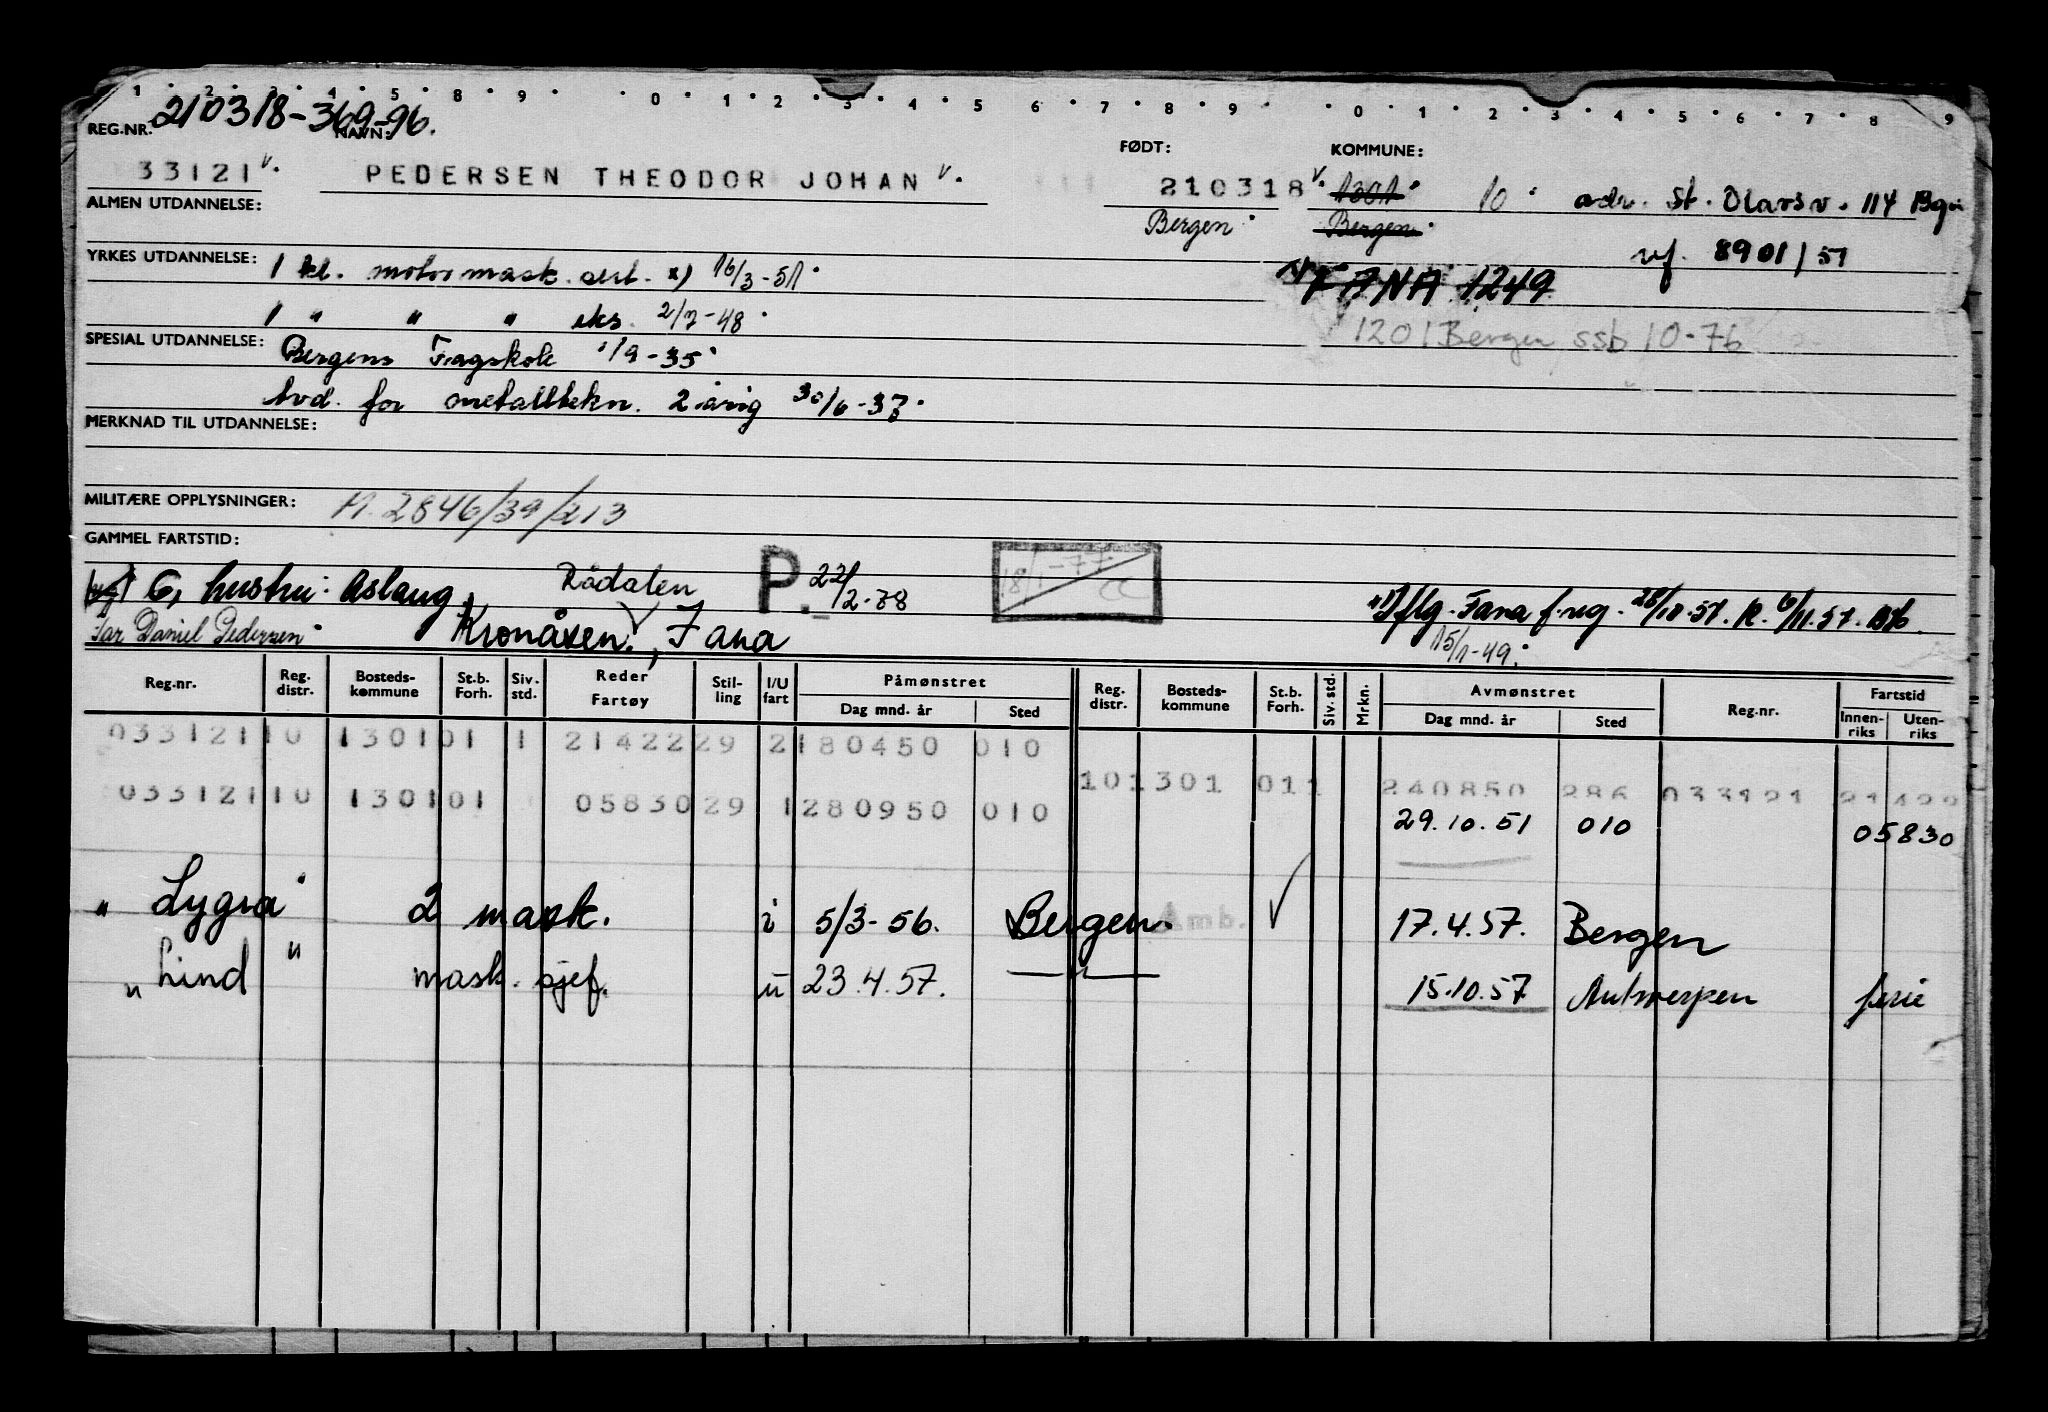 1 2 3 4 5 8 9 0 1 2 3 4 5 6 7 8 9 0 1 2 3 4 5 6 7 8 9
REG.NR. 210318-369-96. NAVN: FØDT: KOMMUNE:
33121 v. PEDERSEN THEODOR JOHAN v. 210318 v. 1301 10 adr. St. Olavsv. 114 Bgn
ALMEN UTDANNELSE: Bergen Bergen
vf. 8901/51
YRKES UTDANNELSE: 1 kl. motormask. sert. x) 16/3-51 FANA 1249
1 " " " eks. 2/7-48
1201 Bergen ssb 10-76
SPESIAL UTDANNELSE: Bergens Fagskole 1/9-35
avd. for metalltekn. 2-årig 30/6-37
MERKNAD TIL UTDANNELSE:
MILITÆRE OPPLYSNINGER: A. 2846/39/213
GAMMEL FARTSTID:
G, hustru: Aslaug, Rådalen P. 22/2-78 18/1-77
Far Daniel Pedersen Kronåsen, Fana x1) flg. Fana f.reg. 28/10-57. K. 6/11.57.
15/1-49.
Reg.nr. Reg. distr. Bosteds-kommune St.b. Forh. Siv. std. Reder Fartøy Stil-ling I/U fart Påmønstret Dag mnd. år Sted Reg. distr. Bosteds-kommune St.b. Forh. Siv. std. Mrkn. Avmønstret Dag mnd. år Sted Reg.nr. Fartstid Innen-riks Uten-riks
033121 10 1301 01 1 21422 29 2 180450 010
10 1301 01 1 240850 286 033121 21422
033121 10 1301 01 05830 29 1 280950 010
29.10.51 010 05830
" Lygra " 2 mask. i 5/3-56. Bergen. Amb. 17.4.57. Bergen
" Lind " mask. sjef. u 23.4.57. —"— 15.10.57 Antwerpen ferie